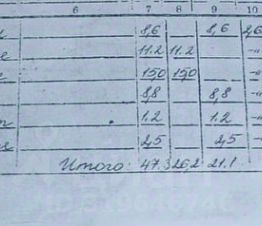 6 7 8 9 10
8,6 8,6 2,6
11.2 11.2 -"-
150 150 -"-
8,8 8,8 -"-
1.2 1.2 -"-
2,5 2,5 -"-
Итого: 47.3 26.2 21.1